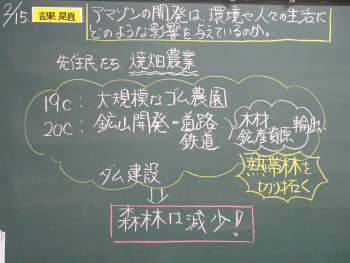 2/15 課題 アマゾンの開発は、環境や人々の生活に
どのような影響を与えているのか。
先住民たち 焼畑農業
19c:大規模なゴム農園
20c:鉱山開発-道路
鉄道
木材
鉱産資源 輸出
熱帯林を
切り拓く
ダム建設
森林は減少!